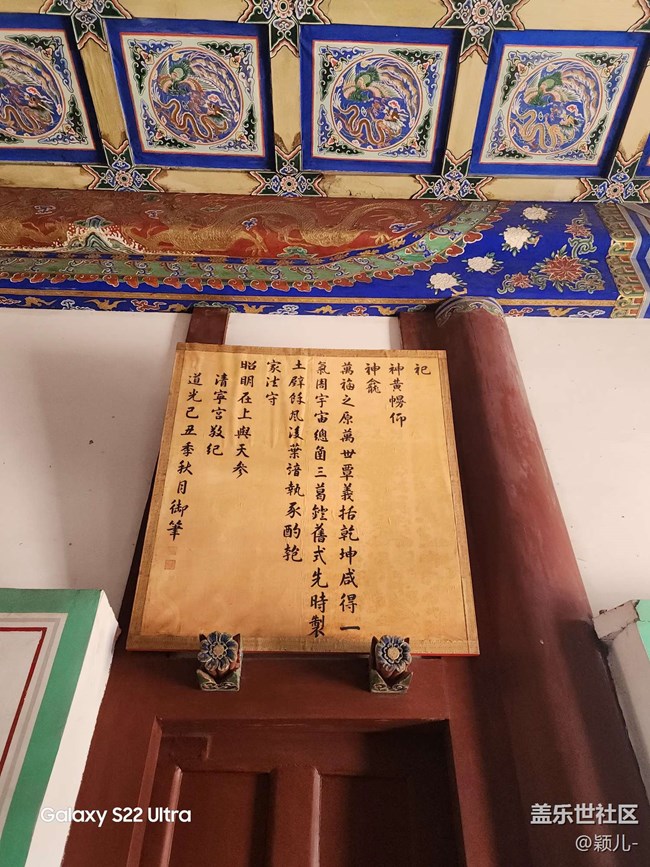 祀
神黄幌仰
神龕
萬福之原萬世覃義括乾坤咸得一
氣周宇宙總函三葛鐙舊式先時製
土壁餘風後葉諳執豕酌匏
家法守
昭明在上與天參
清寧宮敬紀
道光己丑季秋月御筆
Galaxy S22 Ultra
盖乐世社区
@颖儿-